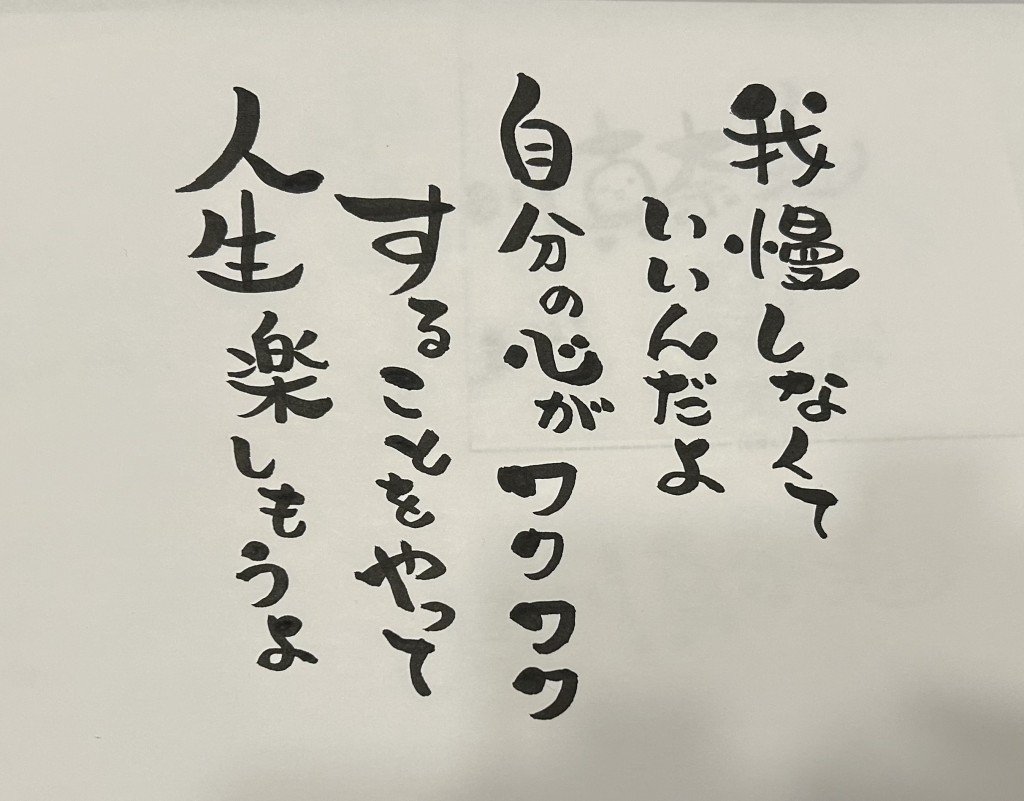 我慢しなくて
いいんだよ
自分の心がワクワク
することをやって
人生楽しもうよ